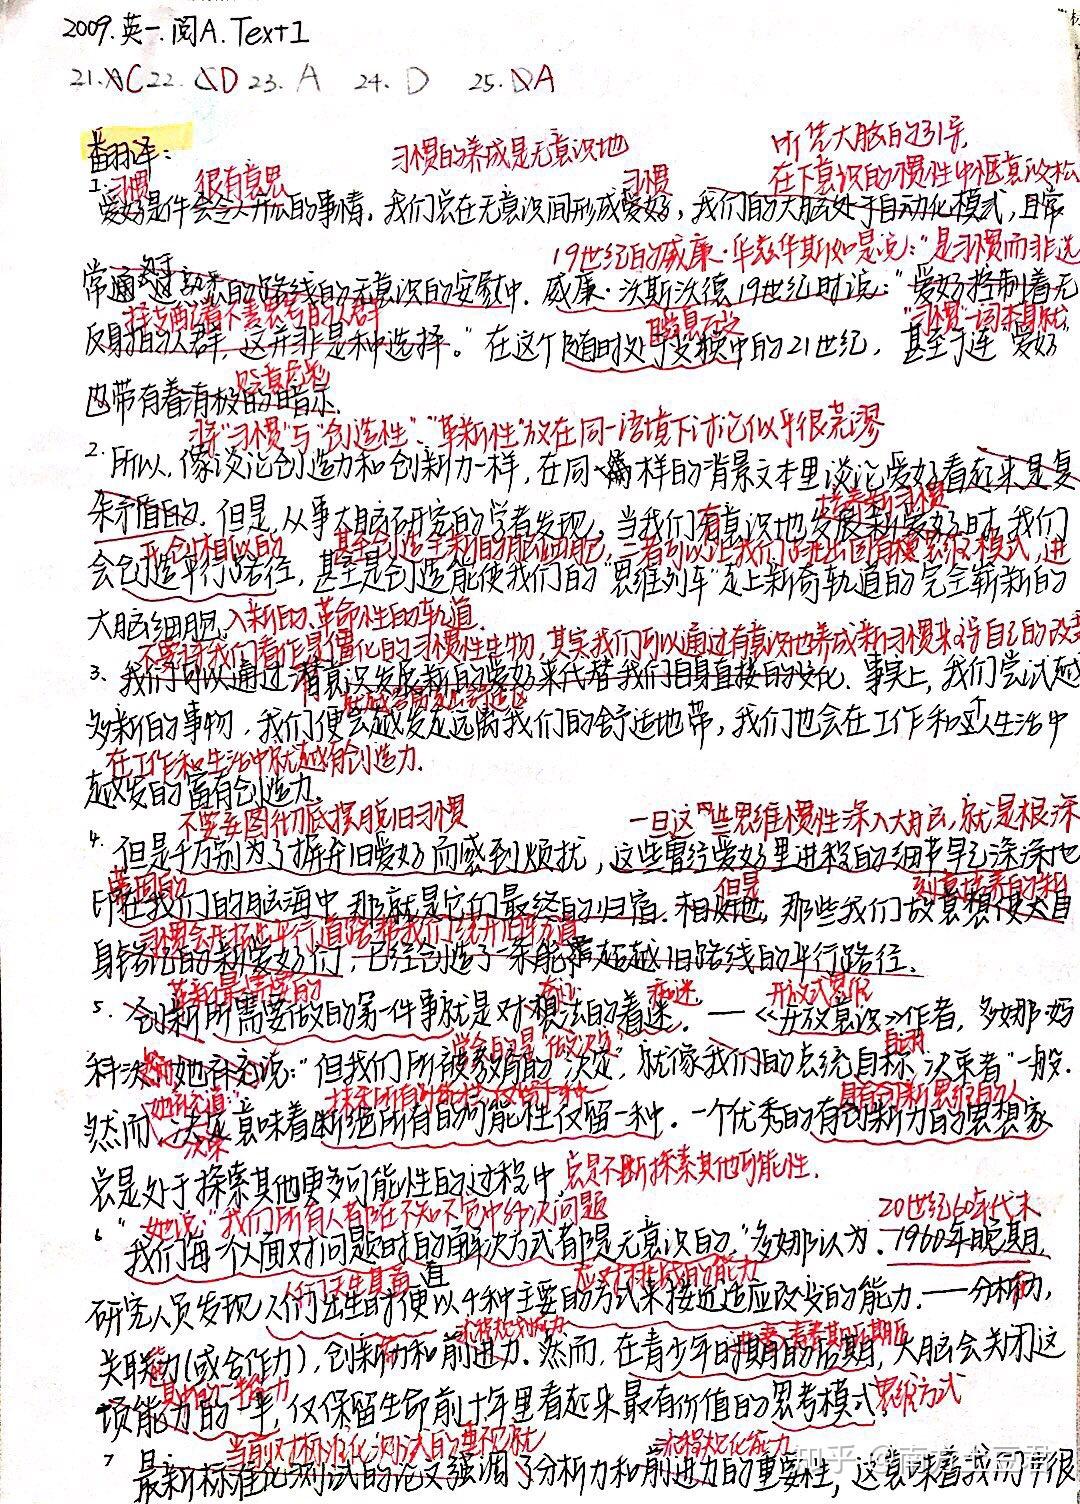 2009.英一.阅A.Text1
21.AC 22.CD 23.A 24.D 25.DA
翻译：
习惯的养成是无意识地
听凭大脑的引导，
习惯 很有意思 习惯 在下意识的惯性中惬意放松
1.爱好是件会令人开心的事情。我们总在无意识间形成爱好，我们的大脑处于自动化模式，且常
19世纪的威廉·华兹华斯如是说："是习惯而非选
常通过熟悉的路线的无意识的安慰中。威廉·沃斯沃德19世纪时说："爱好控制着无
择支配着不善思考的人群 瞬息万变 "习惯"一词本身就
反射的人群，这并非是种选择。"在这个随时处于变换中的21世纪，甚至于连"爱好
贬义
也带有着消极的暗示.
将"习惯"与"创造性"、"革新性"放在同一语境下讨论似乎很荒谬
2.所以，像谈论创造力和创新力一样，在同样的背景文本里谈论爱好看起来是复
培养新习惯
杂矛盾的.但是，从事大脑研究的学者发现，当我们有意识地发展新爱好时，我们
创相似的 甚至创造全新的脑细胞，二者可以让我们的进出固有模思维模式，进
会创造平行路径，甚至是创造能使我们的"思维列车"走上新奇轨道的完全崭新的
大脑细胞. 入新的、革命性的轨道.
不要将我们看作是僵化的习惯性生物，其实我们可以通过有意识地养成新习惯来导自己的改变
3.我们可以通过潜意识发展新的爱好来代替我们自身直接的变化.事实上，我们尝试越
多新的事物，我们便会越发走远离我们的舒适地带，我们也会在工作和个人生活中
在工作和生活中就越有创造力.
越发的富有创造力.
不要妄图彻底摆脱旧习惯 一旦这些思维惯性深入大脑，就是根深
4.但是千万别为了摒弃旧爱好而感到烦扰，这些曾经爱好里进程的细节早已深深地
蒂固的 但是 刻意培养的新
印在我们的脑海中，那就是它们最终的归宿.相好地，那些我们故意想使大自
习惯会开拓出平行道路帮我们绕开旧有道
身转化的新爱好们，已经创造了一条能超越旧路线的平行路径.
革新最需要的 着迷 开放式思维
5.创新所需要做的第一件事就是对想法的着迷.——《开放意识》作者，多娜那·妈
学会的是"做决定"
科沃她补充说："但我们所被教育的'决定'，就像我们的总统自标'决策者'一般.
"她补充道" 抹杀所有可能性，仅留下一种 具有创新思维的人
然而，决定意味着断绝所有的可能性仅留一种.一个优秀的有创新力的思想家
决策
总是处于探索其他更多可能性的过程中 总是不断探索其他可能性.
她说："我们所有人都在不知不觉中解决问题 20世纪60年代末
6"我们每个人面对问题时的解决方式都是无意识的，"多娜认为.1960年晚期
人们天生具备 应对挑战的能力
研究人员发现人们出生时便以4种主要的方式来接近适应改变的能力.——分析力，
关联力(或合作力)，创新力和前进力.然而，在青少年时期的后期，大脑会关闭这
其中的一半能力
项能力的一半，仅保留生命前十年里看起来最有价值的思考模式. 思维方式
当前对标准化测试的重视就 流程规化能力
7 最新标准化测试的论文强调了分析力和前进力的重要性，这意味着我们中很
知乎 @南方土豆君